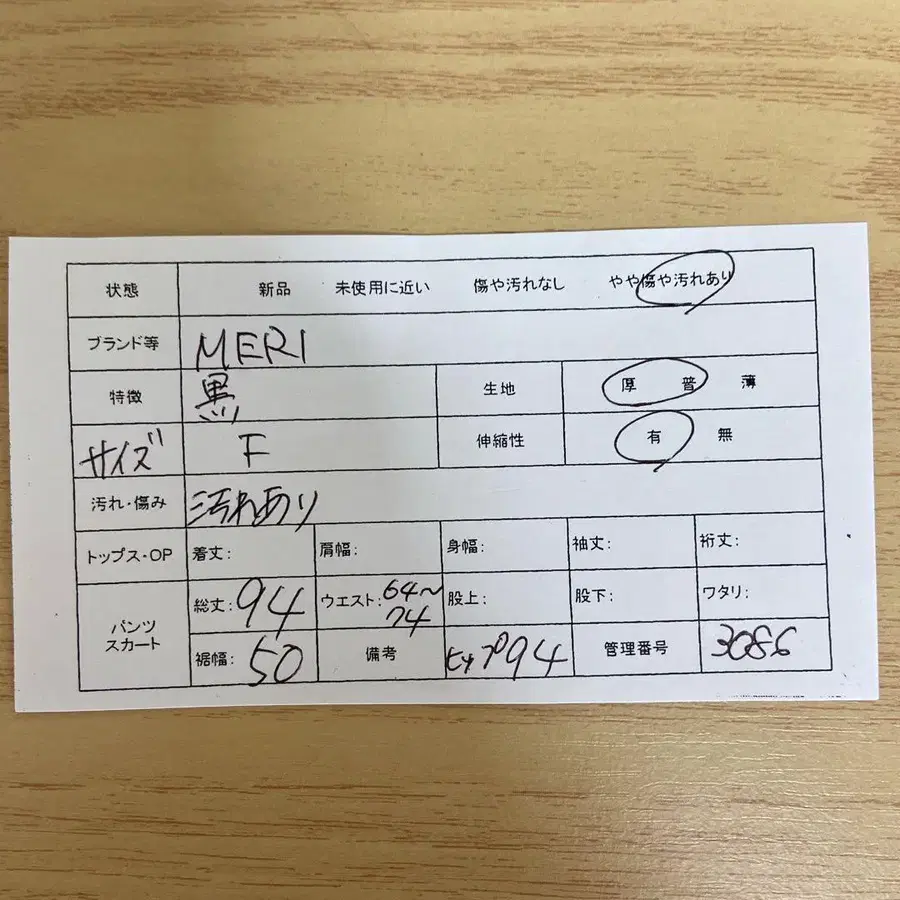 状態 新品 未使用に近い 傷や汚れなし やや傷や汚れあり
ブランド等 MERI
特徴 黒 生地 厚 普 薄
サイズ F 伸縮性 有 無
汚れ・傷み 汚れあり
トップス・OP 着丈: 肩幅: 身幅: 袖丈: 裄丈:
パンツ スカート
総丈: 94 ウエスト: 64〜74 股上: 股下: ワタリ:
裾幅: 50 備考 ヒップ94 管理番号 3086